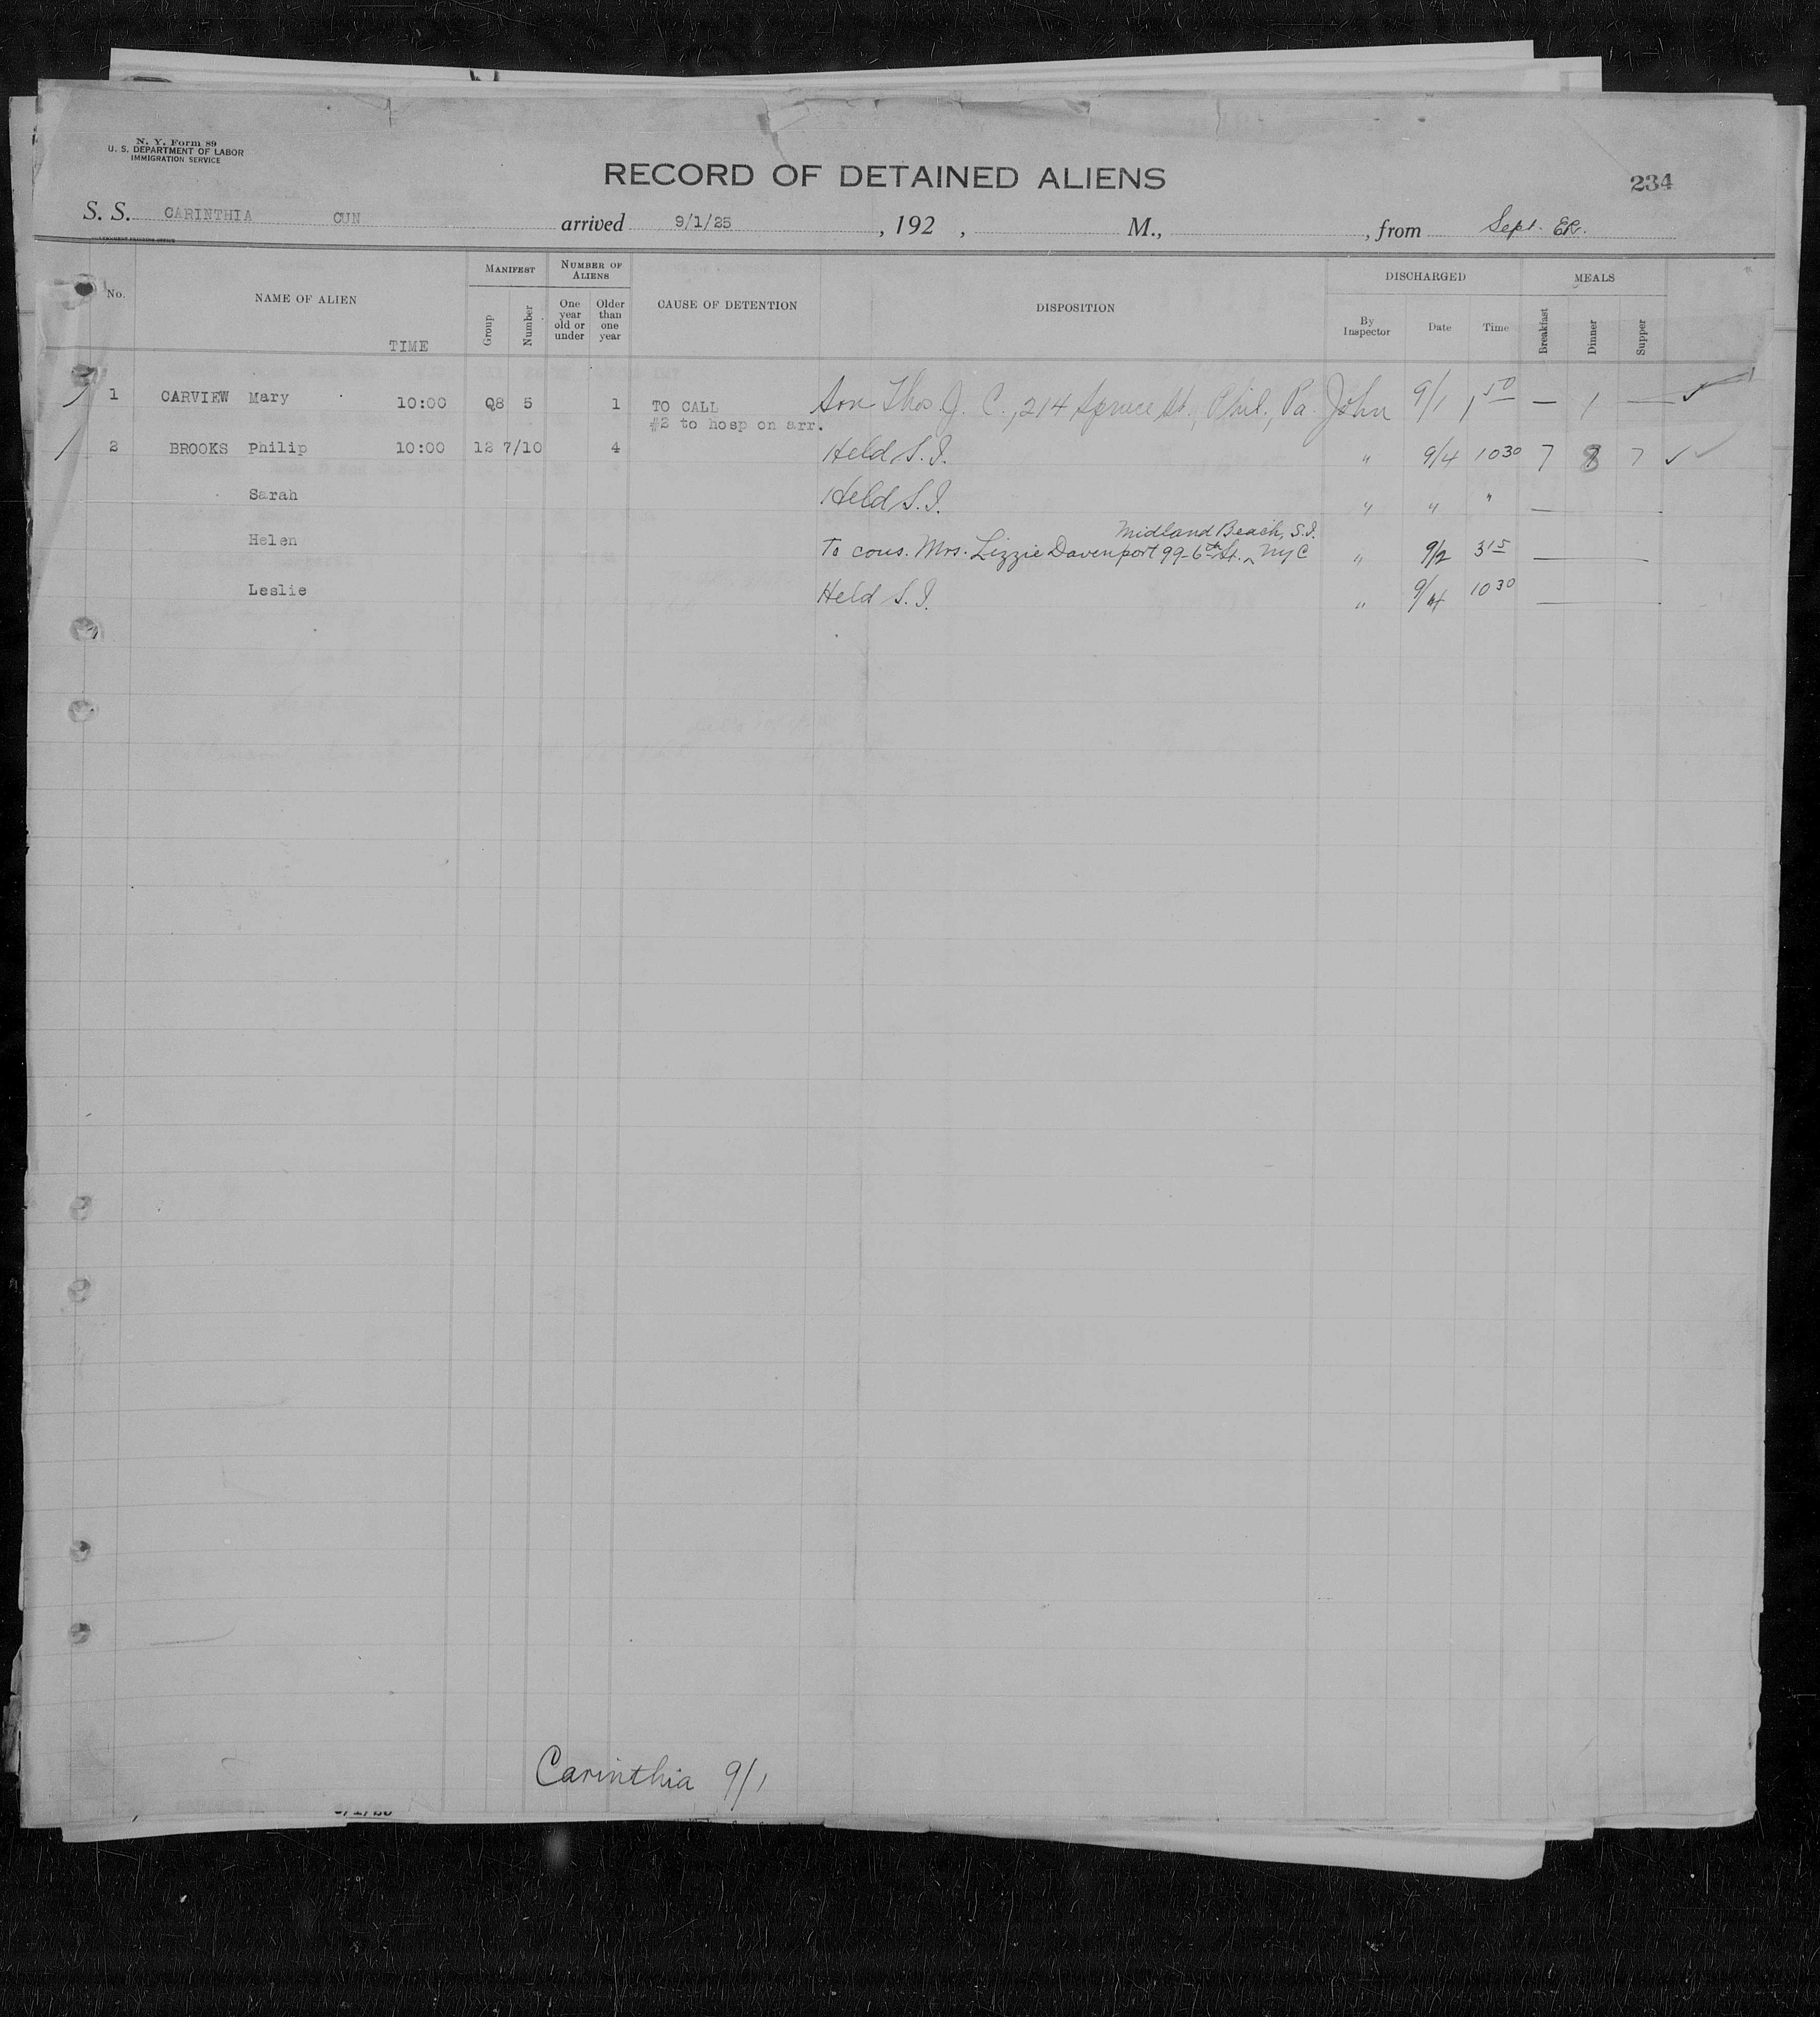 N. Y. Form 89
U. S. DEPARTMENT OF LABOR
IMMIGRATION SERVICE
RECORD OF DETAINED ALIENS
234
S. S. CARINTHIA CUN arrived 9/1/25 , 192 , M., , from Sept. ER.
No. NAME OF ALIEN TIME MANIFEST Group Number NUMBER OF ALIENS One year old or under Older than one year CAUSE OF DETENTION DISPOSITION DISCHARGED By Inspector Date Time MEALS Breakfast Dinner Supper
1 CARVIEW Mary 10:00 Q8 5 1 TO CALL Son Thos. J. C., 214 Spruce St., Phil., Pa. John 9/1 1 50 — 1 — ✓
#2 to hosp on arr.
2 BROOKS Philip 10:00 12 7/10 4 Held S.I. " 9/4 10 30 7 8 7 ✓ ✓
Sarah Held S.I. " " "
Midland Beach, S.I.
Helen To cous. Mrs. Lizzie Davenport 99-6th St. ^ NYC " 9/2 3 15
Leslie Held S.I. " 9/4 10 30
Carinthia 9/1